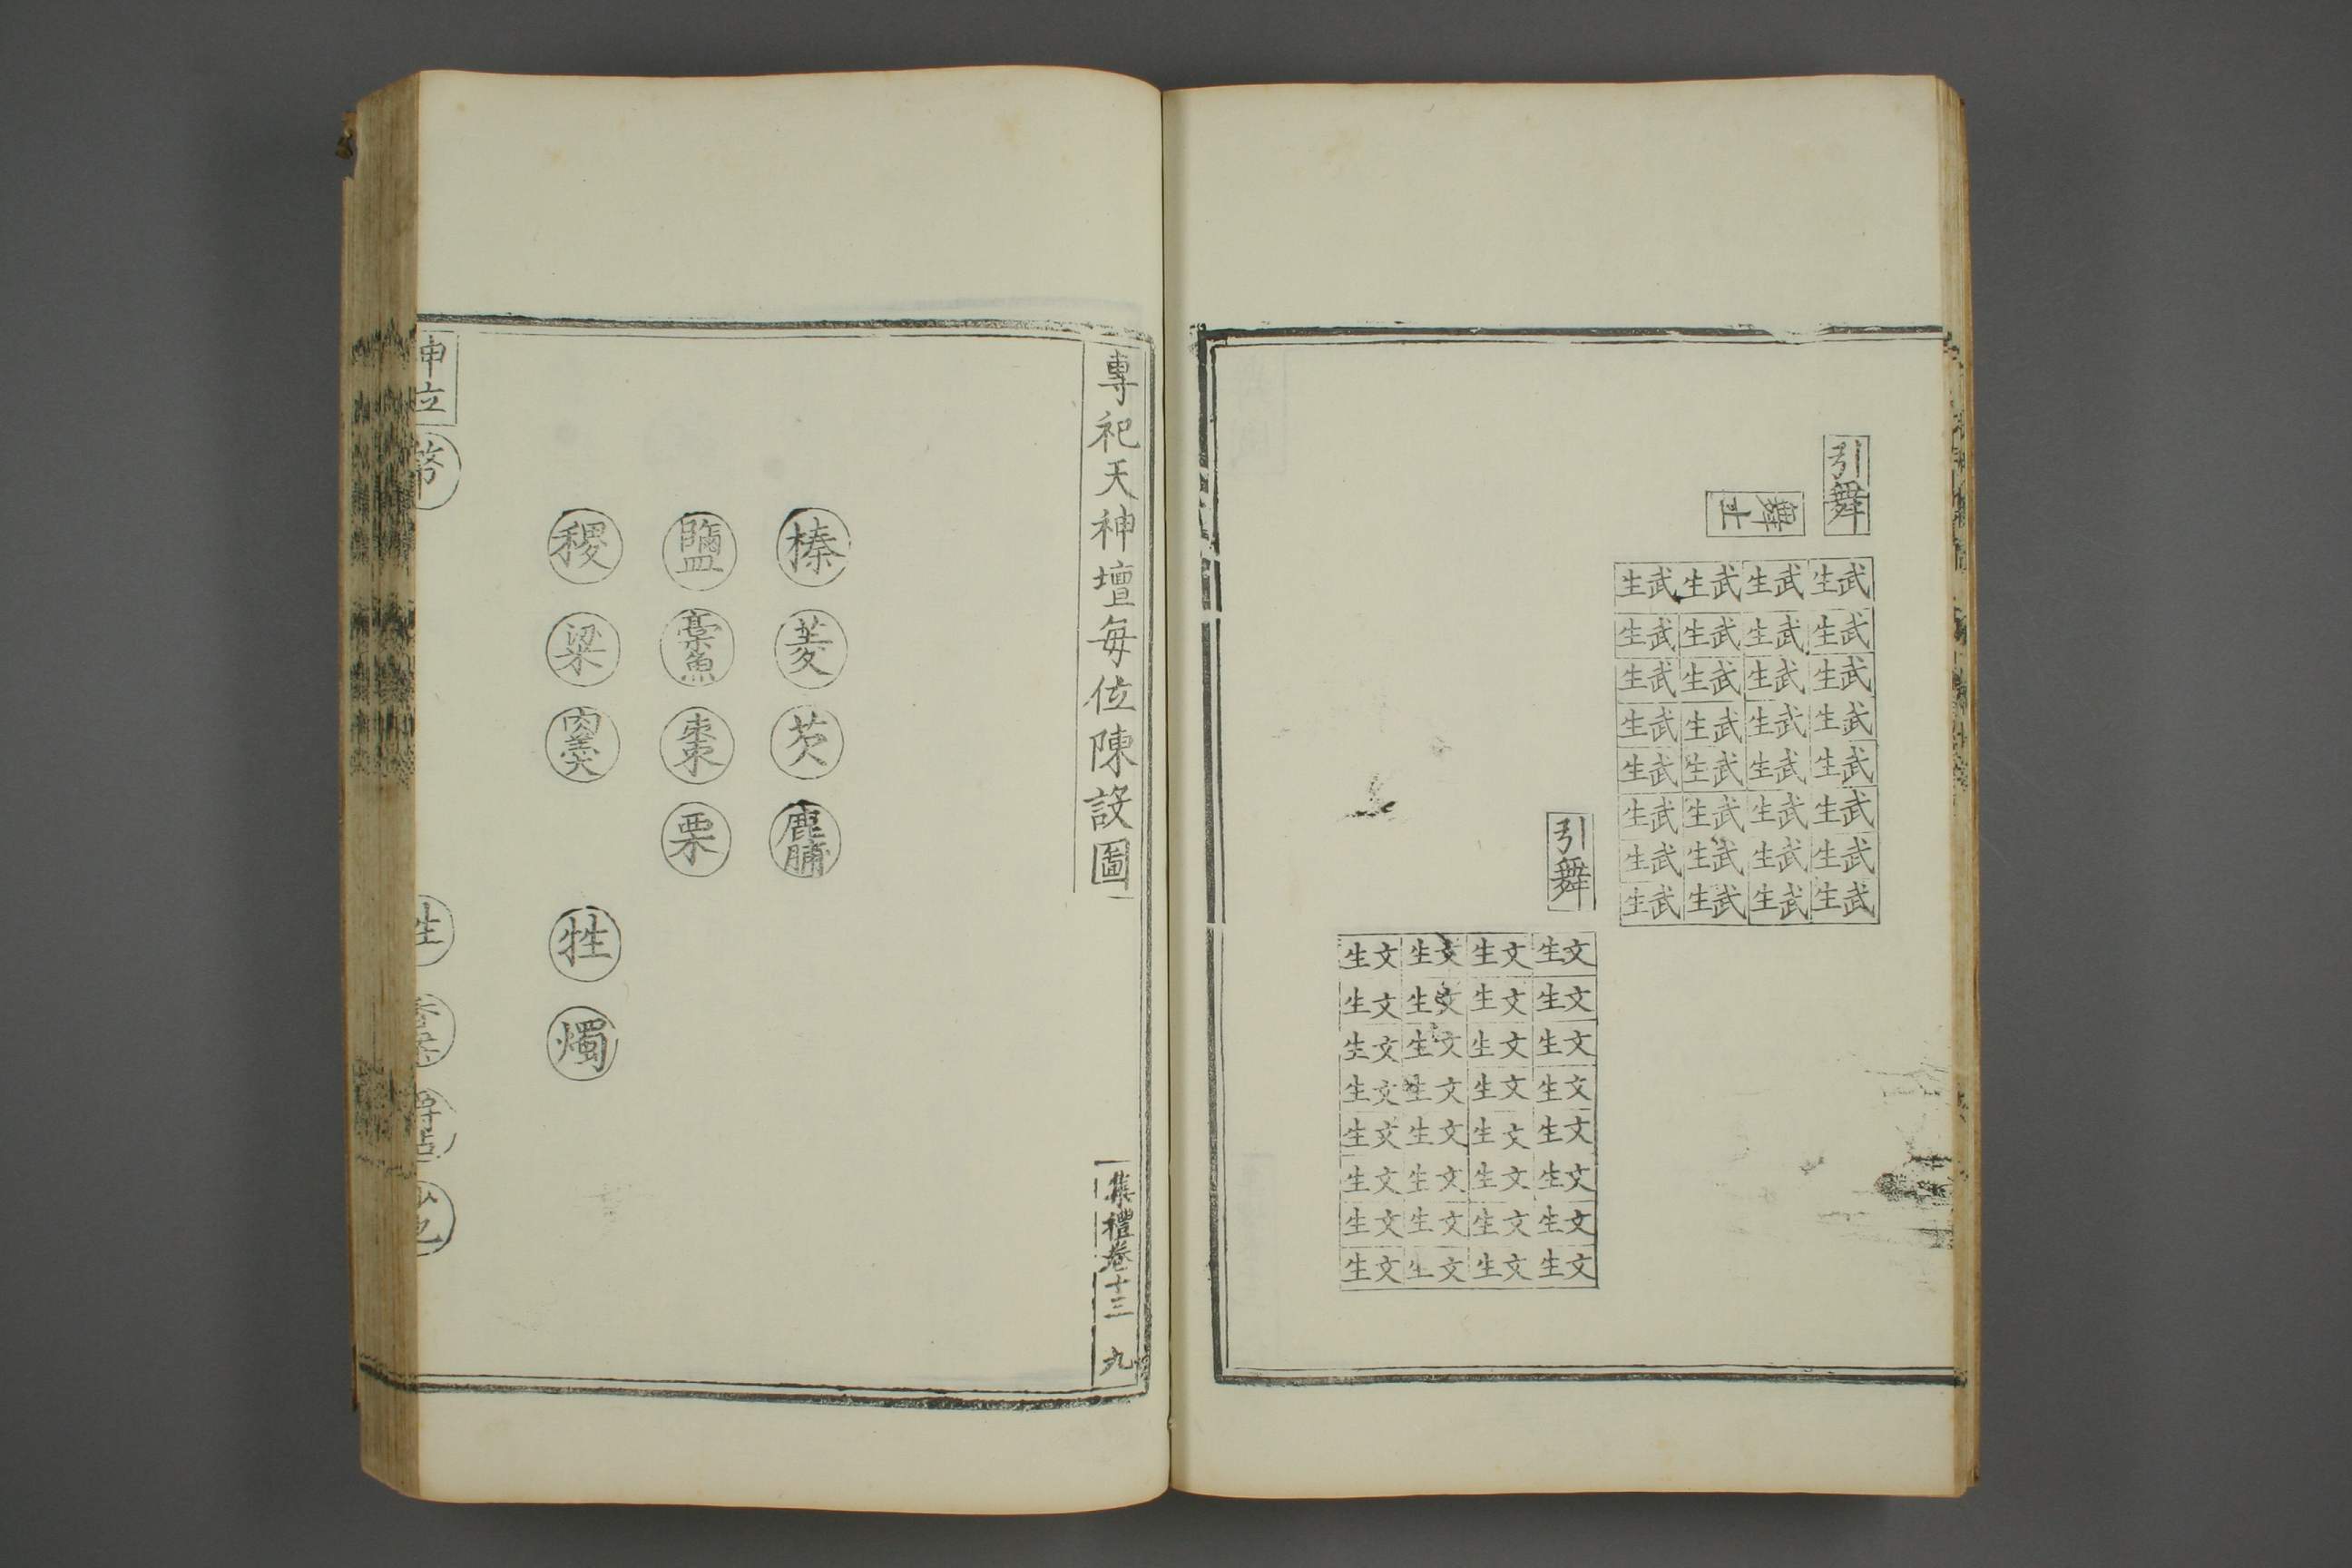 引舞
舞士
武生 武生 武生 武生
武生 武生 武生 武生
武生 武生 武生 武生
武生 武生 武生 武生
武生 武生 武生 武生
武生 武生 武生 武生
武生 武生 武生 武生
武生 武生 武生 武生
引舞
文生 文生 文生 文生
文生 文生 文生 文生
文生 文生 文生 文生
文生 文生 文生 文生
文生 文生 文生 文生
文生 文生 文生 文生
文生 文生 文生 文生
文生 文生 文生 文生
專祀天神壇每位陳設圖
集禮卷十三 九
榛 菱 芡 鹿脯
鹽 藁魚 棗 栗
稷 粱 肉羹
牲 燭